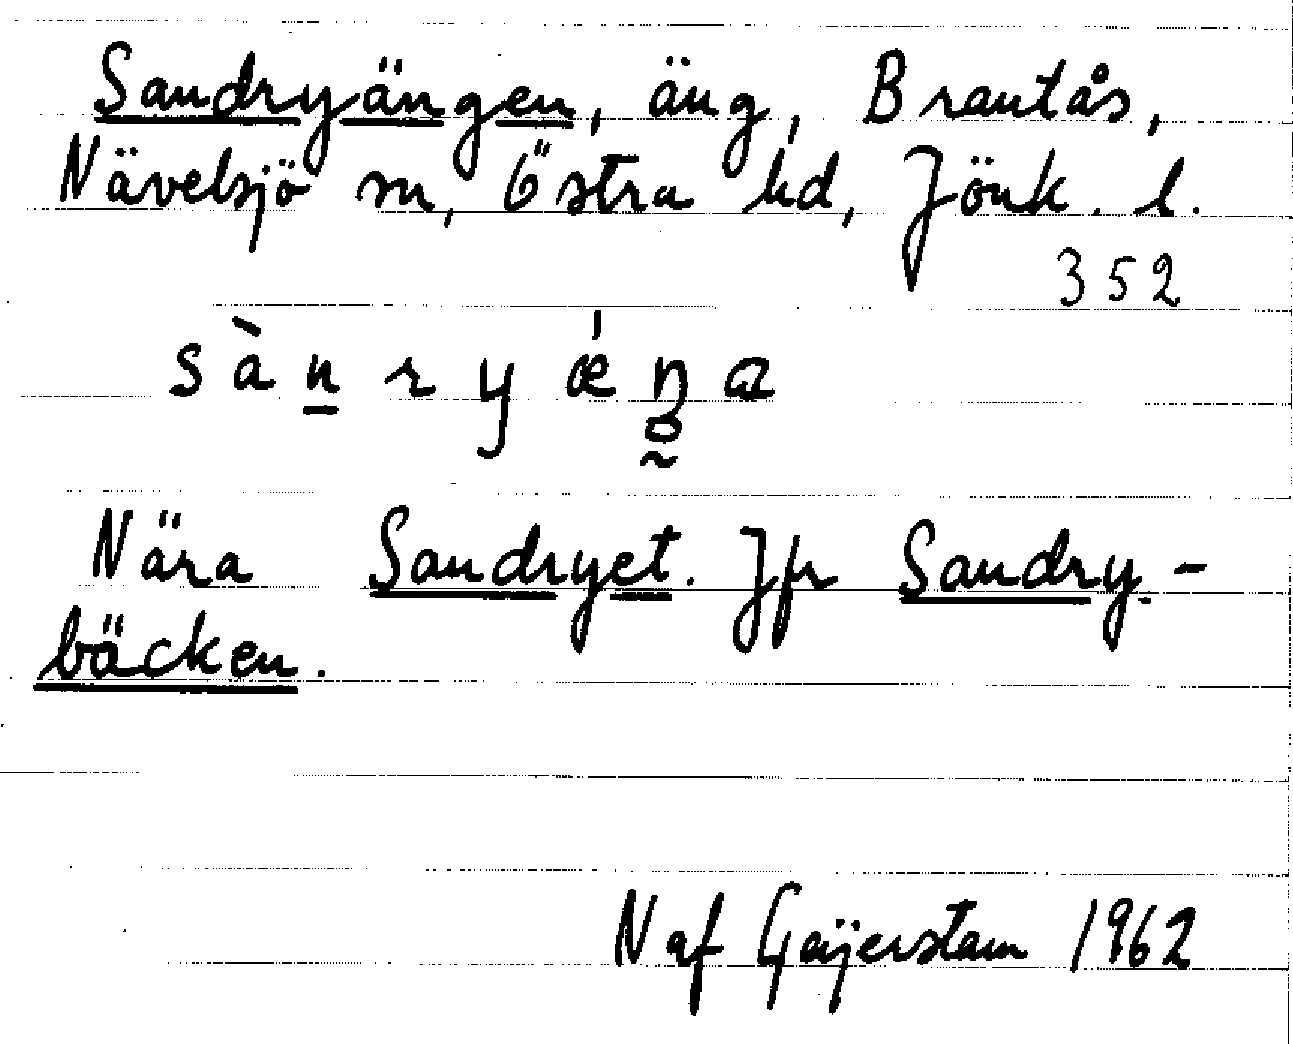 Sandryängen, äng, Brantås,
Nävelsjö sn, Östra hd, Jönk. l.
352
sàn̠ryǽŋ̥̰a
Nära Sandryet. Jfr Sandry-
bäcken.
N af Geijerstam 1962